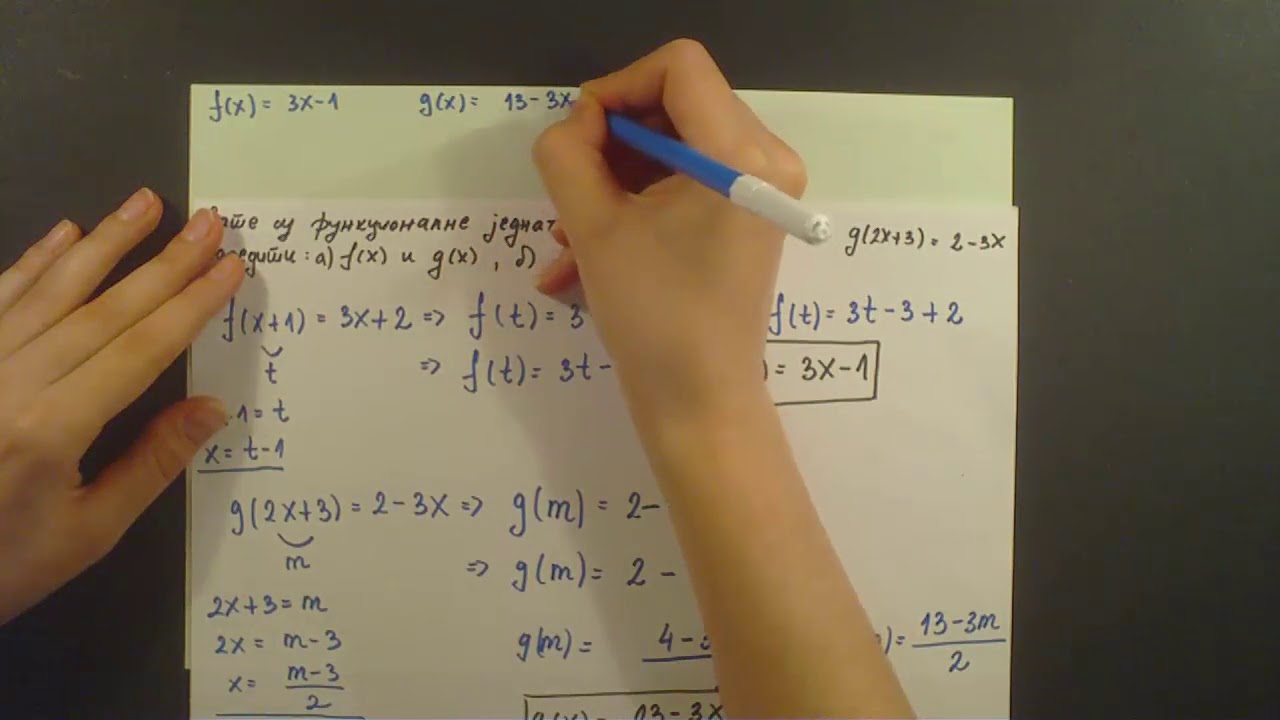 f(x) = 3x-1 g(x) = 13-3x
су функционалне g(2x+3) = 2-3x
: а) f(x) и g(x), б)
f(x+1) = 3x+2 => f(t) = 3 f(t) = 3t-3+2
t => f(t) = 3t- ) = 3x-1
1 = t
x = t-1
g(2x+3) = 2-3x => g(m) = 2-
m => g(m) = 2-
2x+3 = m
2x = m-3 g(m) = 4- ) = \frac{13-3m}{2}
x = \frac{m-3}{2}
13-3x